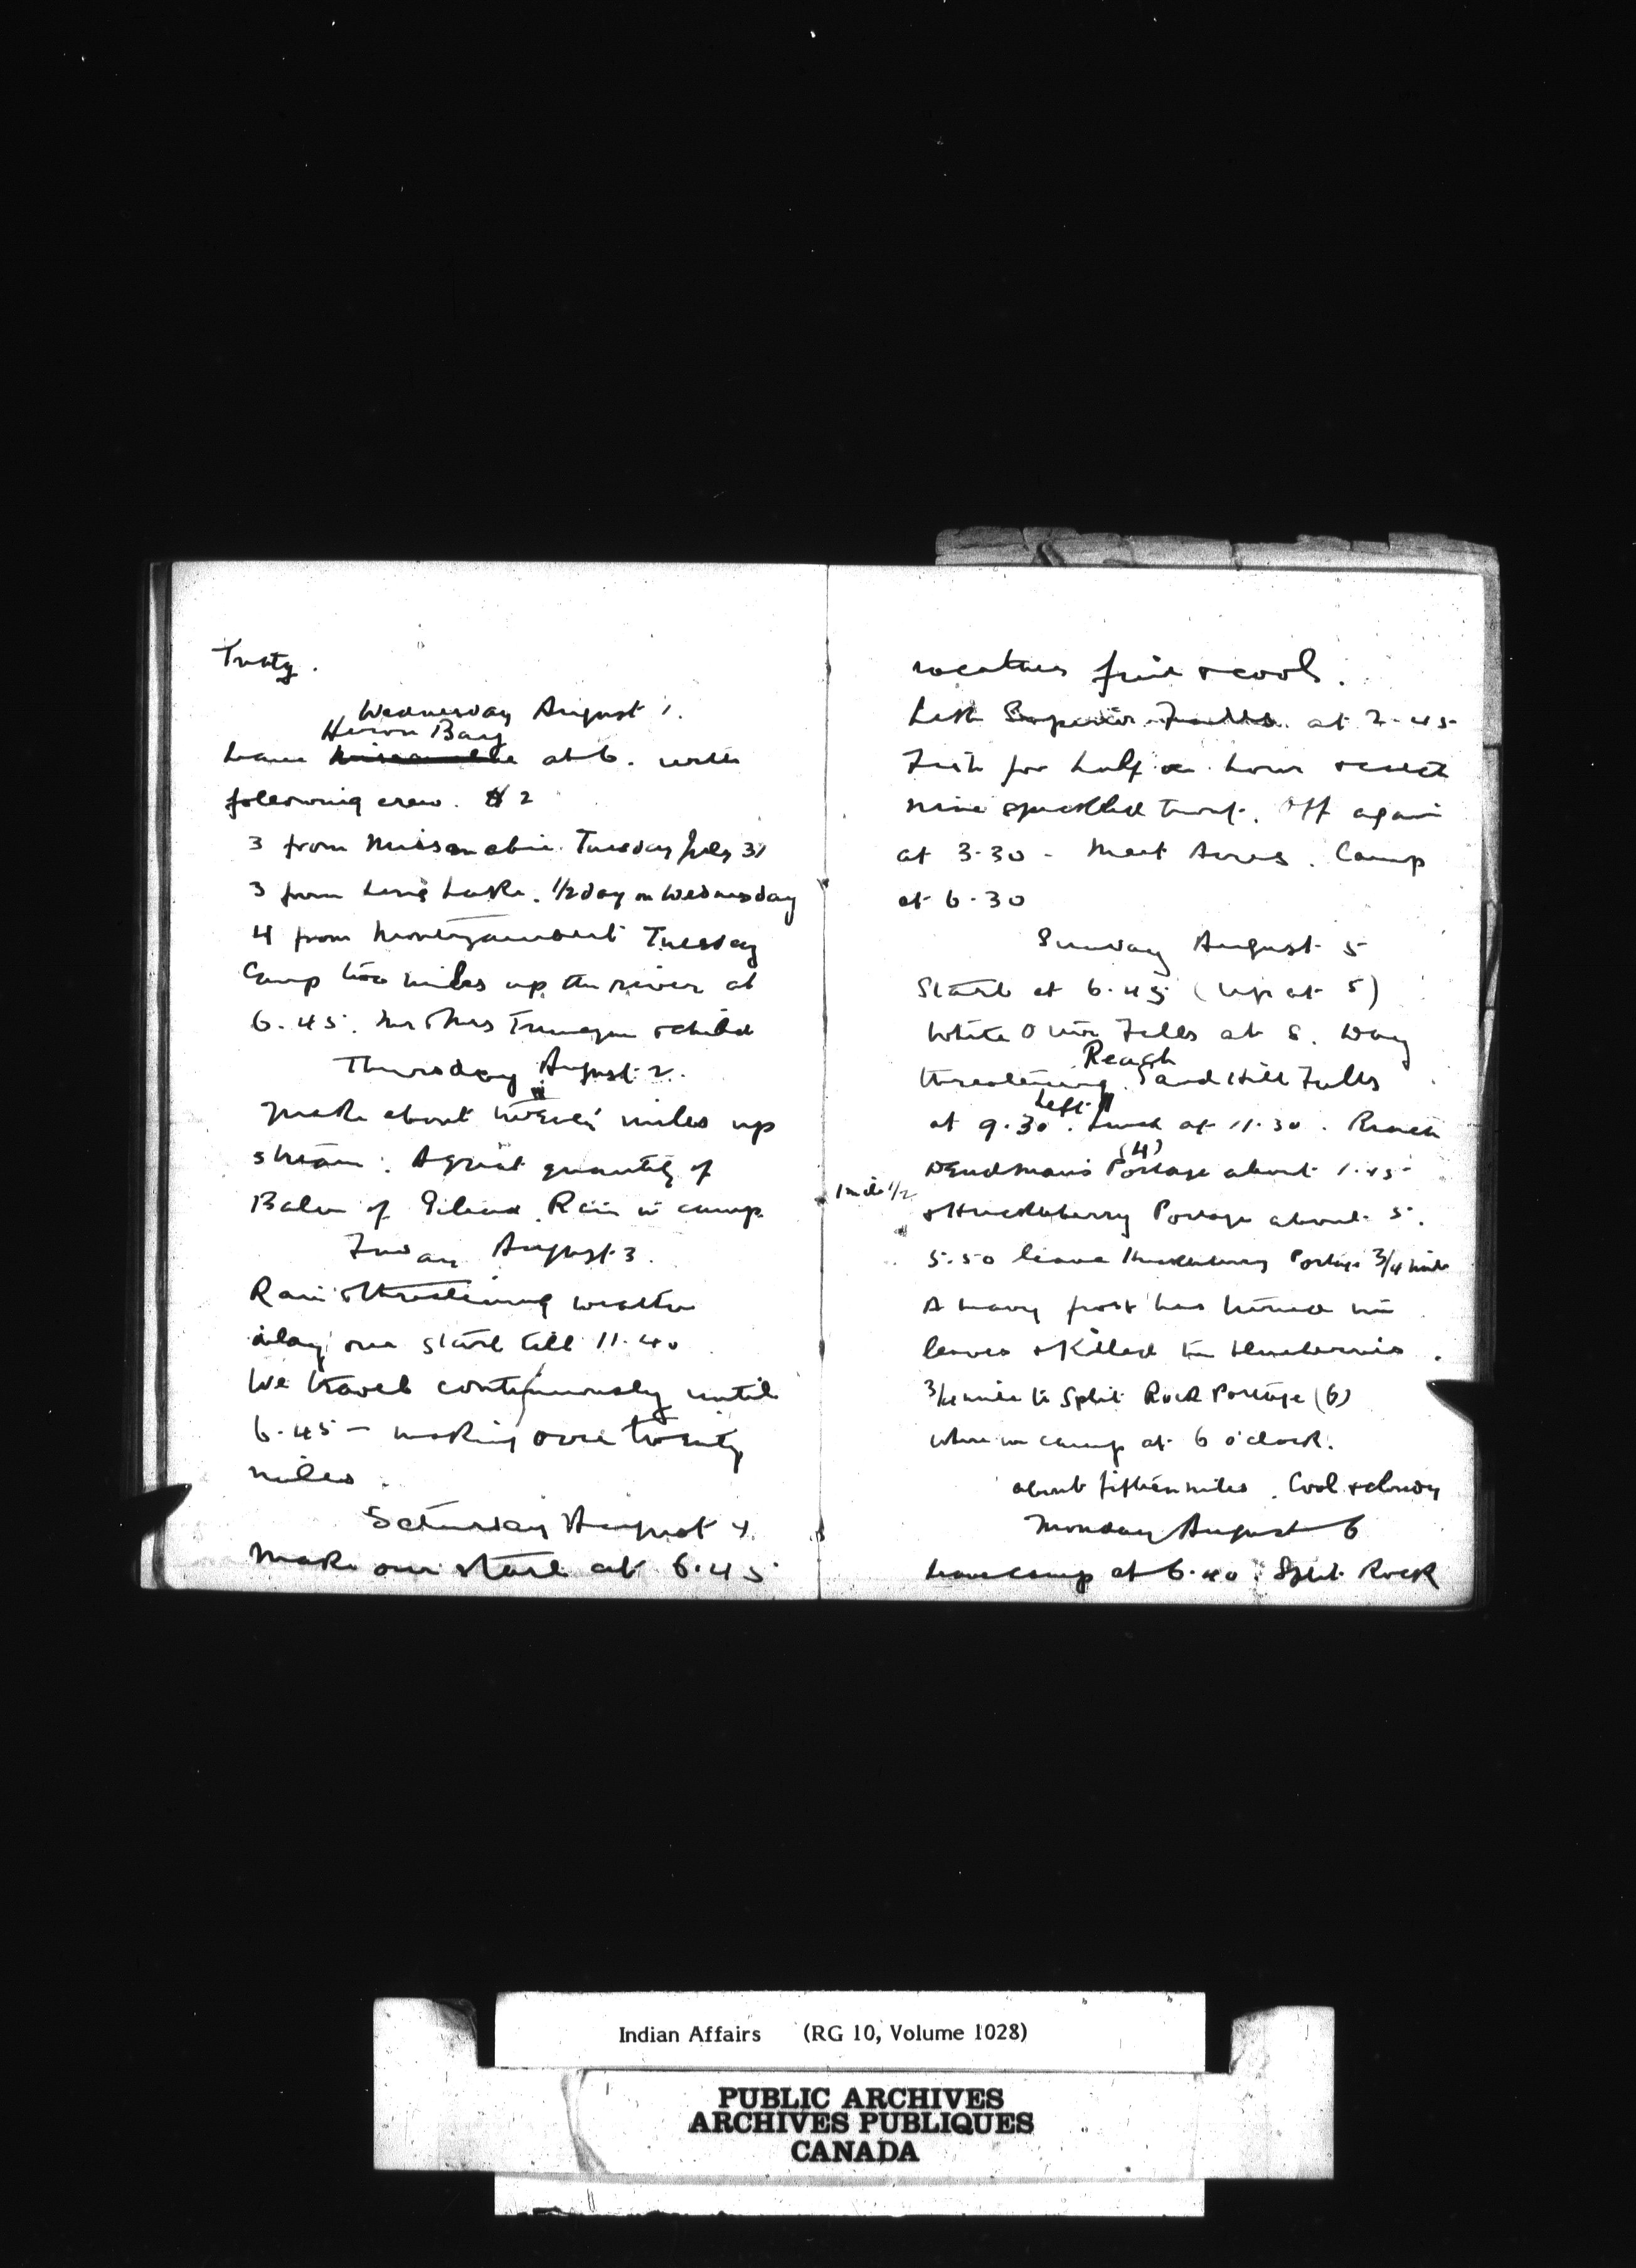 Treaty.
Wednesday August 1.
Heron Bay
Leave Missanabie at 6. with
following crew. 2
3 from Missanabie Tuesday July 31
3 from Long Lake. 1/2 day on Wednesday
4 from Montizambert Tuesday
Camp two miles up the river at
6.45. Mr & Mrs & child
Thursday August 2.
Make about twelve miles up
stream. A great quantity of
Balm of Gilead. Rain in camp.
Friday August 3.
Rain & threatening weather
delay our start till 11.40
We travel continuously until
6.45 - making over twenty
miles.
Saturday August 4
Make our start at 6.45
weather fine & cool.
Left Superior Falls at 2.45
Fish for half an hour & catch
nine speckled trout. Off again
at 3.30 - Meet . Camp
at 6.30
Sunday August 5
Start at 6.45 (Up at 5)
White Otter Falls at 8. Day
Reach
threatening. Sand Hill Falls
Left
at 9.30. Lunch at 11.30. Reach
(4)
Deadman's Portage about 1.45
1 mile 1/2
& Huckleberry Portage about 5.
5.50 leave Huckleberry Portage 3/4 mile
A heavy frost has turned the
leaves & killed the blueberries.
3/4 mile to Split Rock Portage (6)
where we camp at 6 o'clock.
about fifteen miles. Cool & cloudy
Monday August 6
Leave camp at 6.40. Split Rock
Indian Affairs (RG 10, Volume 1028)
PUBLIC ARCHIVES
ARCHIVES PUBLIQUES
CANADA